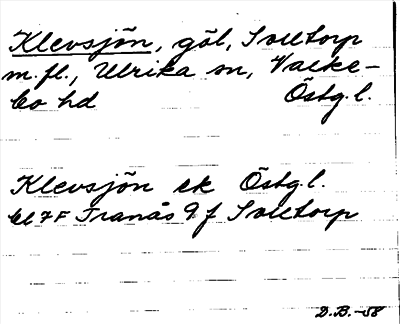 Klevsjön, göl, Svetorp
m.fl., Ulrika sn, Valke-
bo hd Östg.l.
Klevsjön ek Östg.l.
bl 7F Tranås 9f Svetorp
D.B.-58